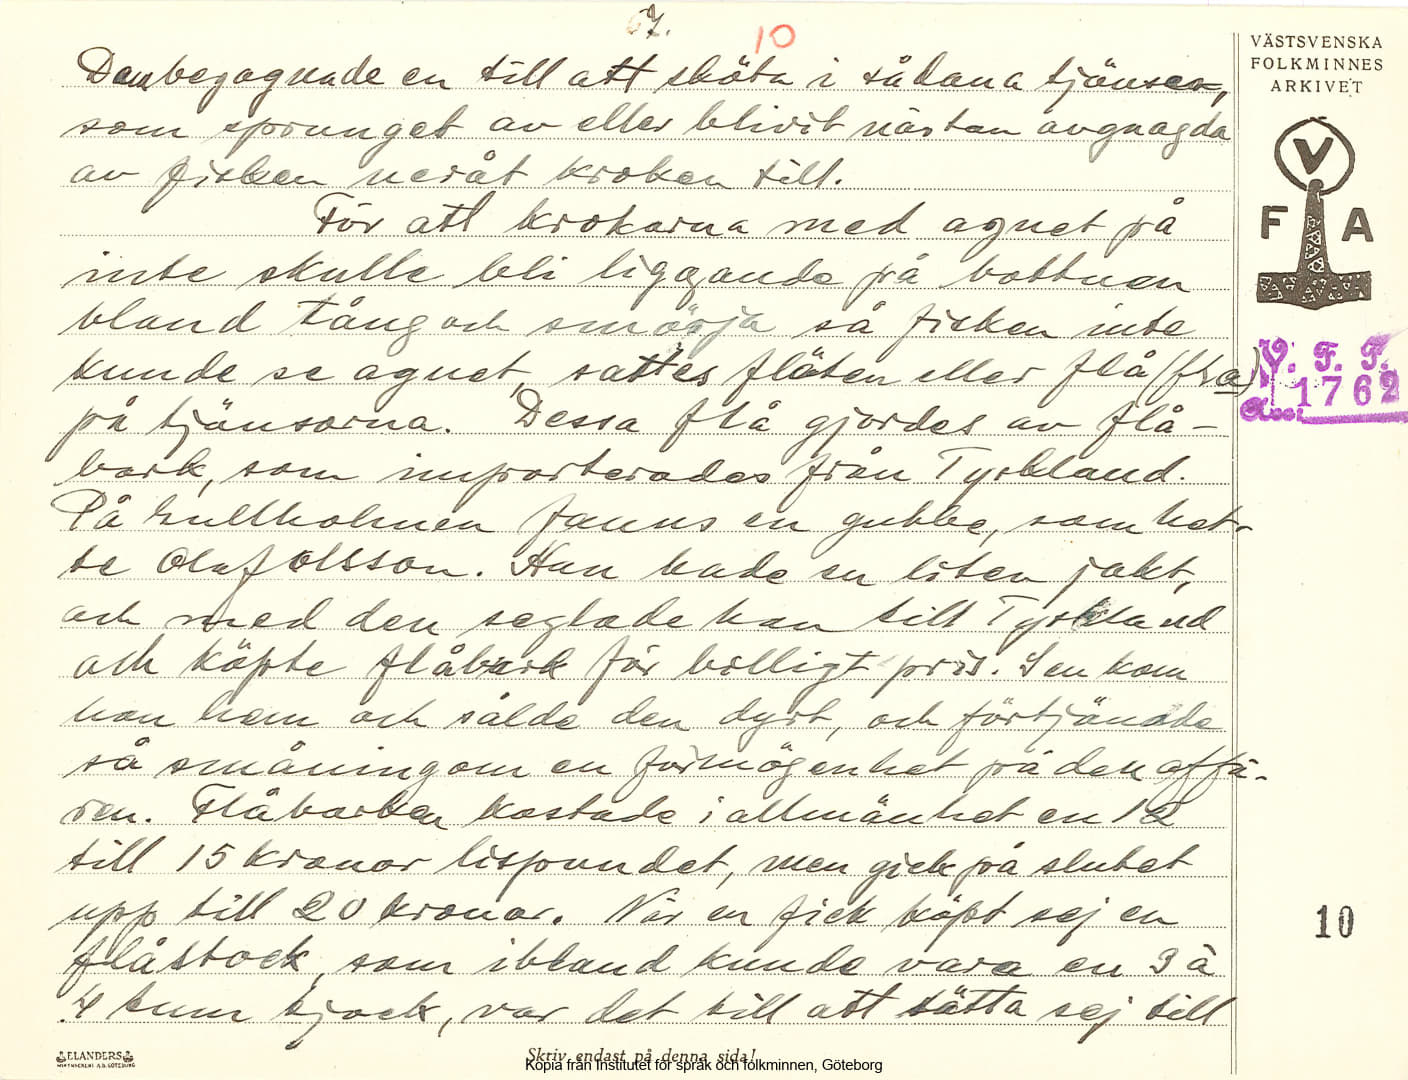 67.
10
VÄSTSVENSKA
FOLKMINNES
ARKIVET
Den begagnade en till att sköta i sådana tjänsor,
som sprunget av eller blivit nästan avgnagda
av fisken neråt kroken till.
För att krokarna med agnet på
inte skulle bli liggande på bottnen
bland tång och smörja så fisken inte
kunde se agnet, sattes flöten eller flå (fla)
på tjänsorna. Dessa flå gjordes av flå-
bark, som importerades från Tyskland.
På Gullholmen fanns en gubbe, som het-
te Olaf Olsson. Han hade en liten jakt,
och med den seglade han till Tyskland
och köpte flåbark för billigt pris. Sen kom
han hem och sålde den dyrt, och förtjänade
så småningom en förmögenhet på den affä-
ren. Flåbarken kostade i allmänhet en 12
till 15 kronor lispundet, men gick på slutet
upp till 20 kronor. När en fick köpt sej en
flåstock, som ibland kunde vara en 3 à
4 tum tjock, var det till att sätta sej till
V
F A
V. F. F.
1762
Acc.
10
ELANDERS
Skriv endast på denna sida!
Kopia från Institutet för språk och folkminnen, Göteborg